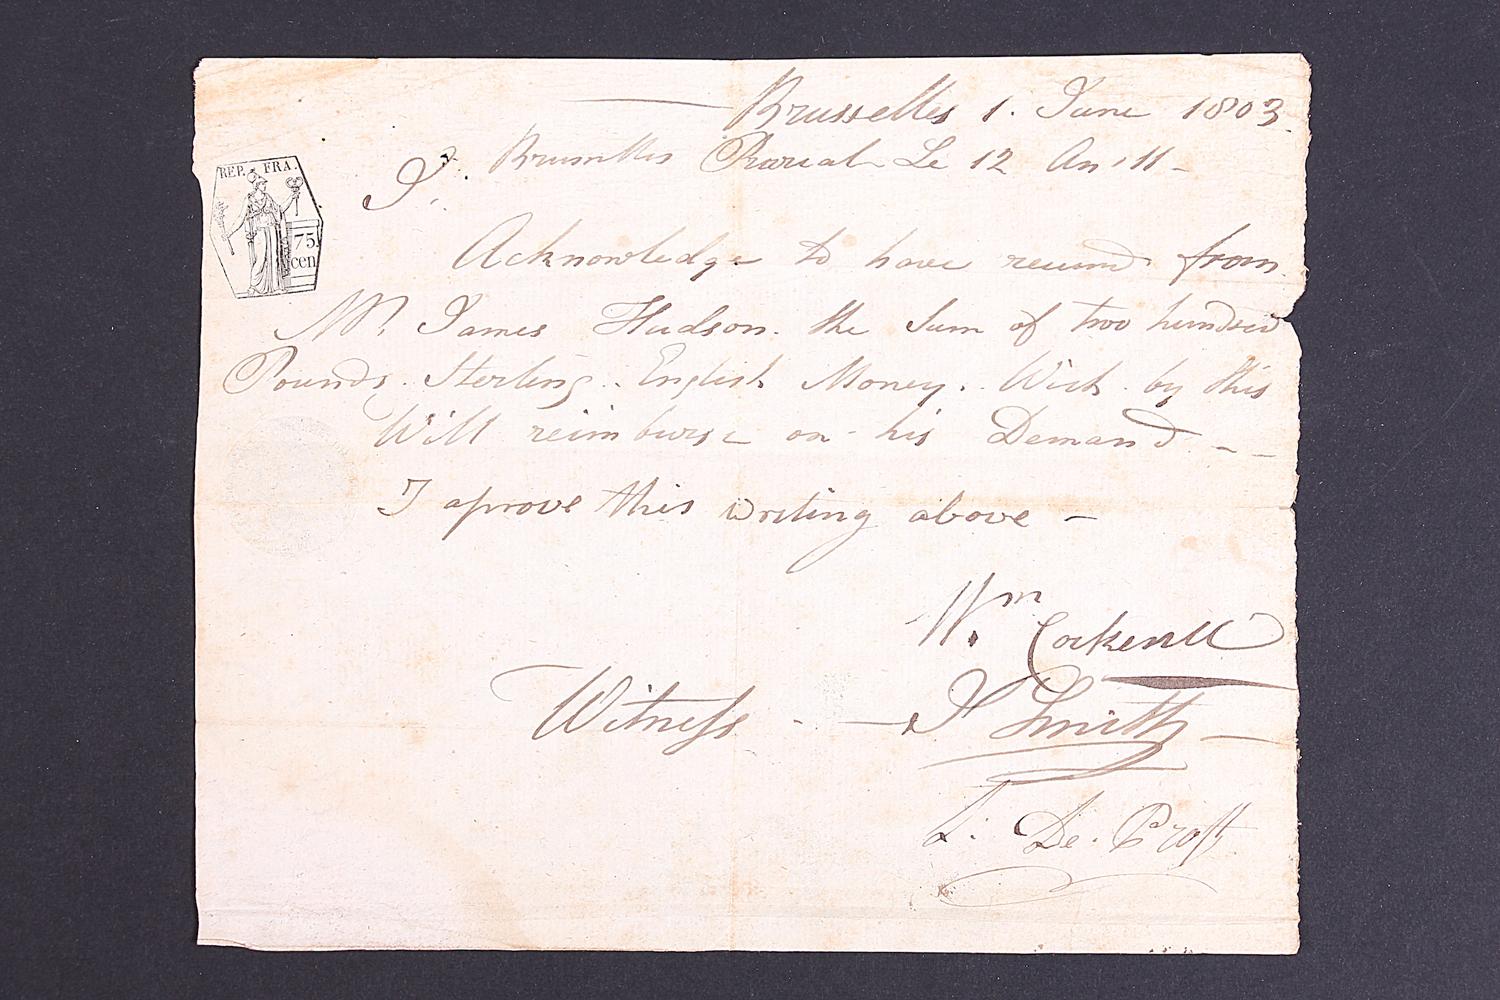 Brusselles 1. June 1803.
Brusselles Prarial Le 12 An 11 -
REP. FRA.
75.
cen
I.
Acknowledge to have receind from
Mr. James Hudson. the Sum of two hundred
Pounds. Sterling. English Money. Wich by this
Will reimburse on his Demand - -
I aprove this writing above -
Wm Cockerill
Witness - - J Smith -
De.